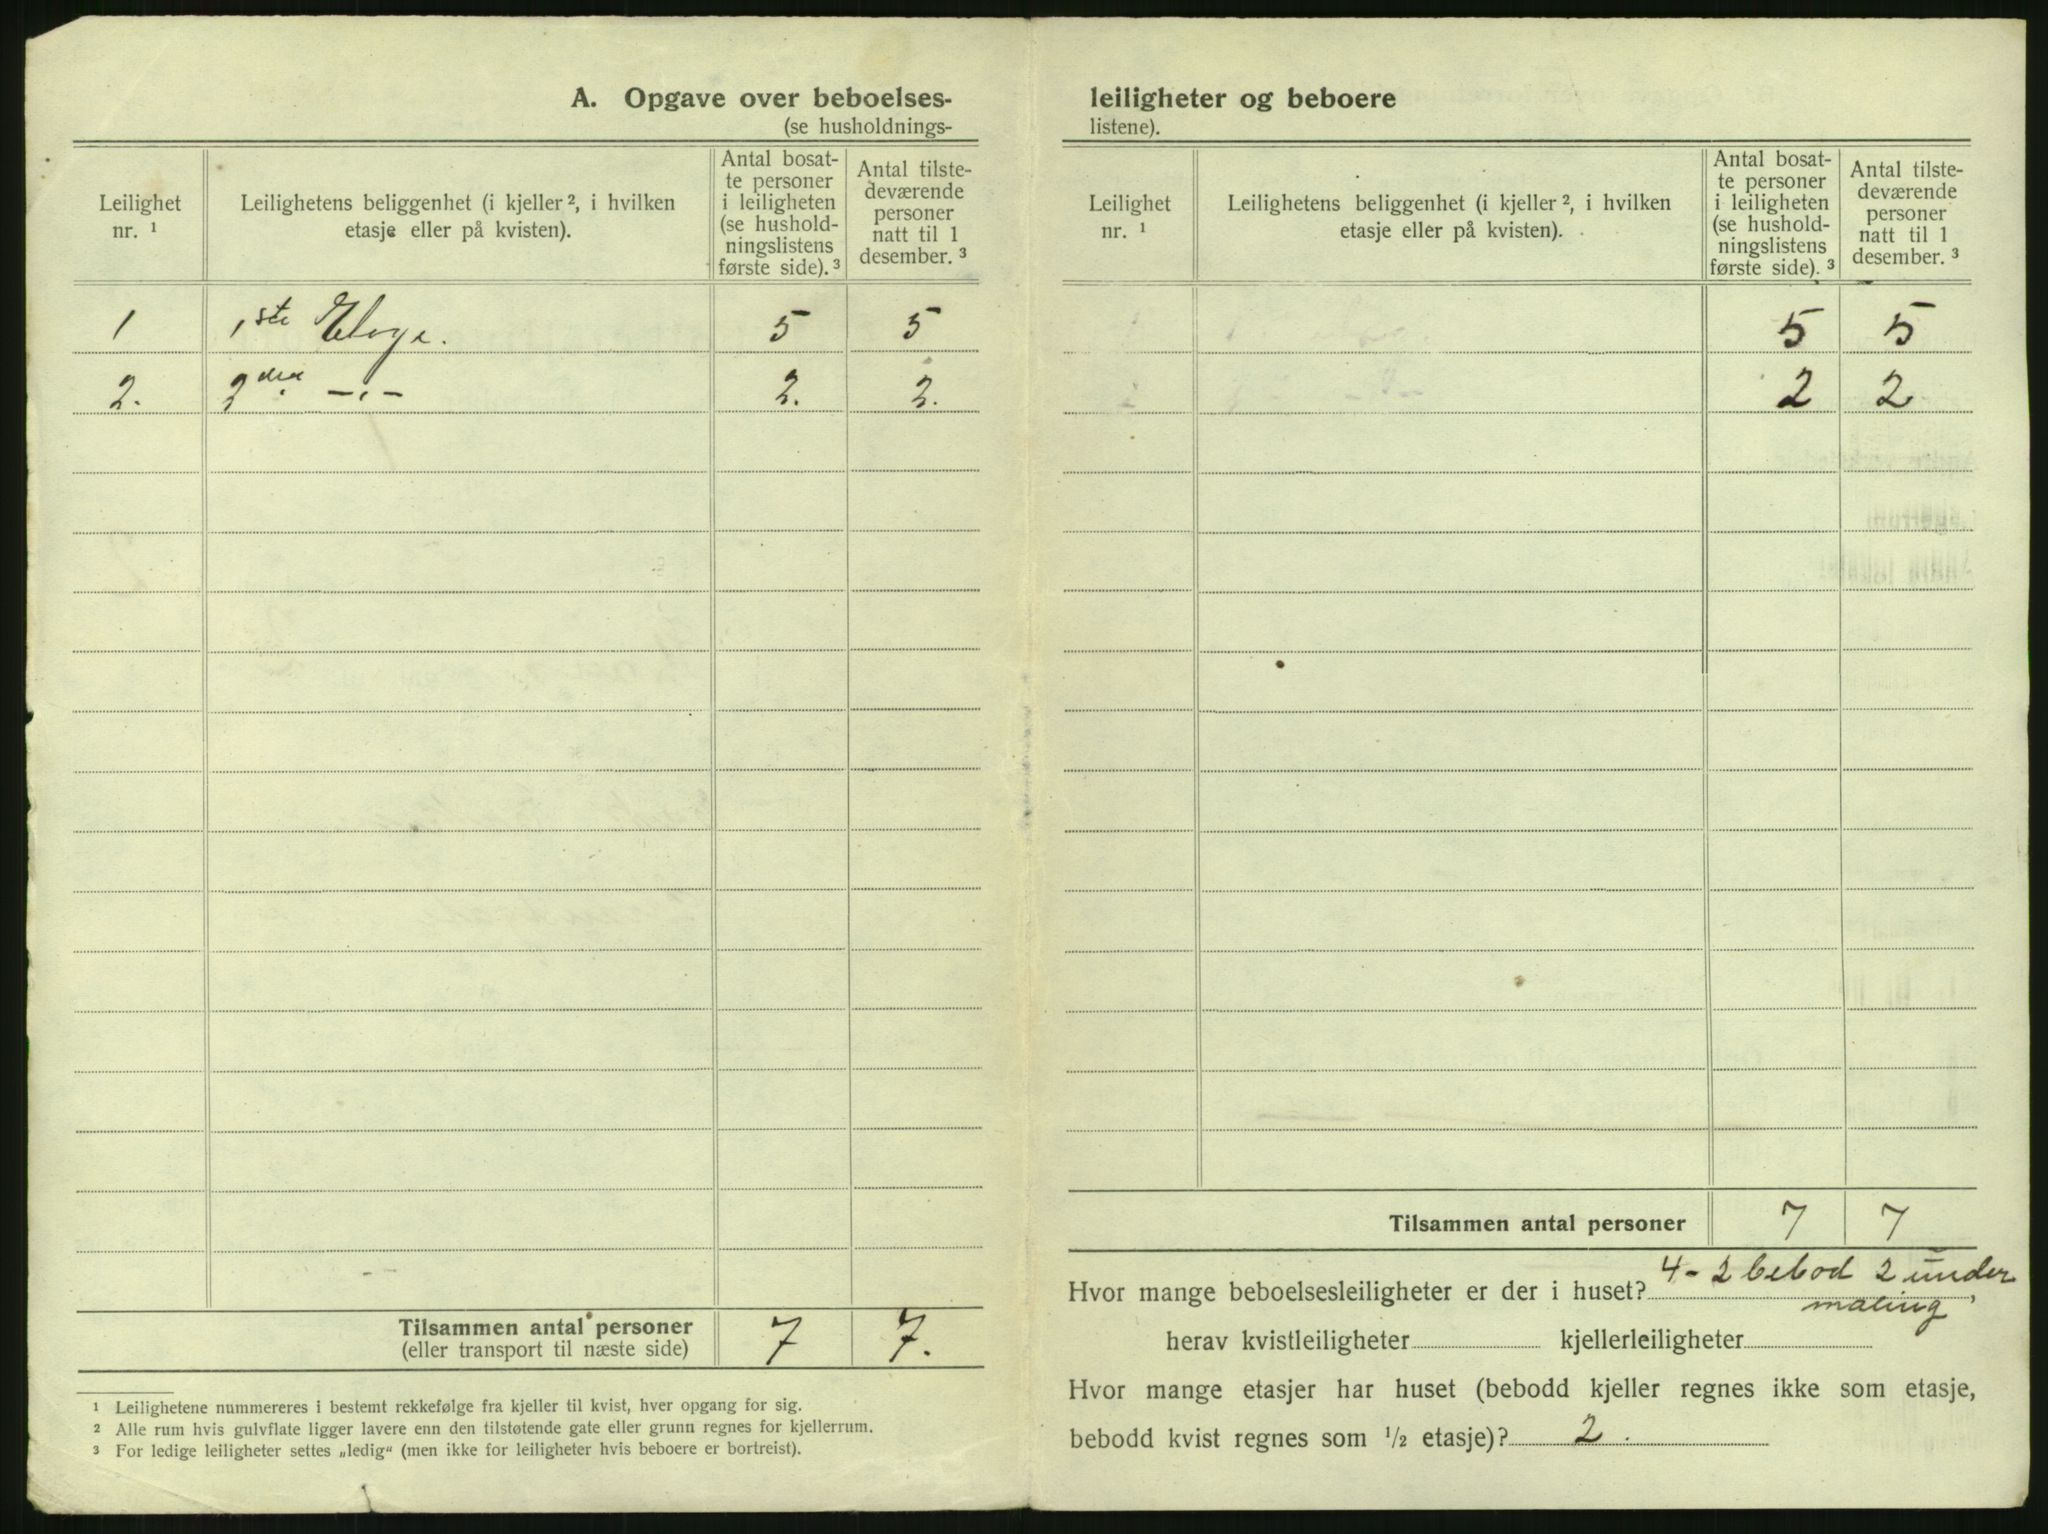 A. Opgave over beboelses-
(se husholdnings-
Leilighet
nr. ¹
Leilighetens beliggenhet (i kjeller ², i hvilken
etasje eller på kvisten).
Antal bosat-
te personer
i leiligheten
(se hushold-
ningslistens
første side). ³
Antal tilste-
deværende
personer
natt til 1
desember. ³
1 1ste Etage. 5 5
2. 2den —·— 2. 2.
Tilsammen antal personer
(eller transport til næste side) 7 7.
¹ Leilighetene nummereres i bestemt rekkefølge fra kjeller til kvist, hver opgang for sig.
² Alle rum hvis gulvflate ligger lavere enn den tilstøtende gate eller grunn regnes for kjellerrum.
³ For ledige leiligheter settes „ledig“ (men ikke for leiligheter hvis beboere er bortreist).
leiligheter og beboere
listene).
Leilighet
nr. ¹
Leilighetens beliggenhet (i kjeller ², i hvilken
etasje eller på kvisten).
Antal bosat-
te personer
i leiligheten
(se hushold-
ningslistens
første side). ³
Antal tilste-
deværende
personer
natt til 1
desember. ³
5 5
2 2
Tilsammen antal personer 7 7
Hvor mange beboelsesleiligheter er der i huset? 4 - 2 bebod 2 under
maling,
herav kvistleiligheter kjellerleiligheter
Hvor mange etasjer har huset (bebodd kjeller regnes ikke som etasje,
bebodd kvist regnes som ½ etasje)? 2.